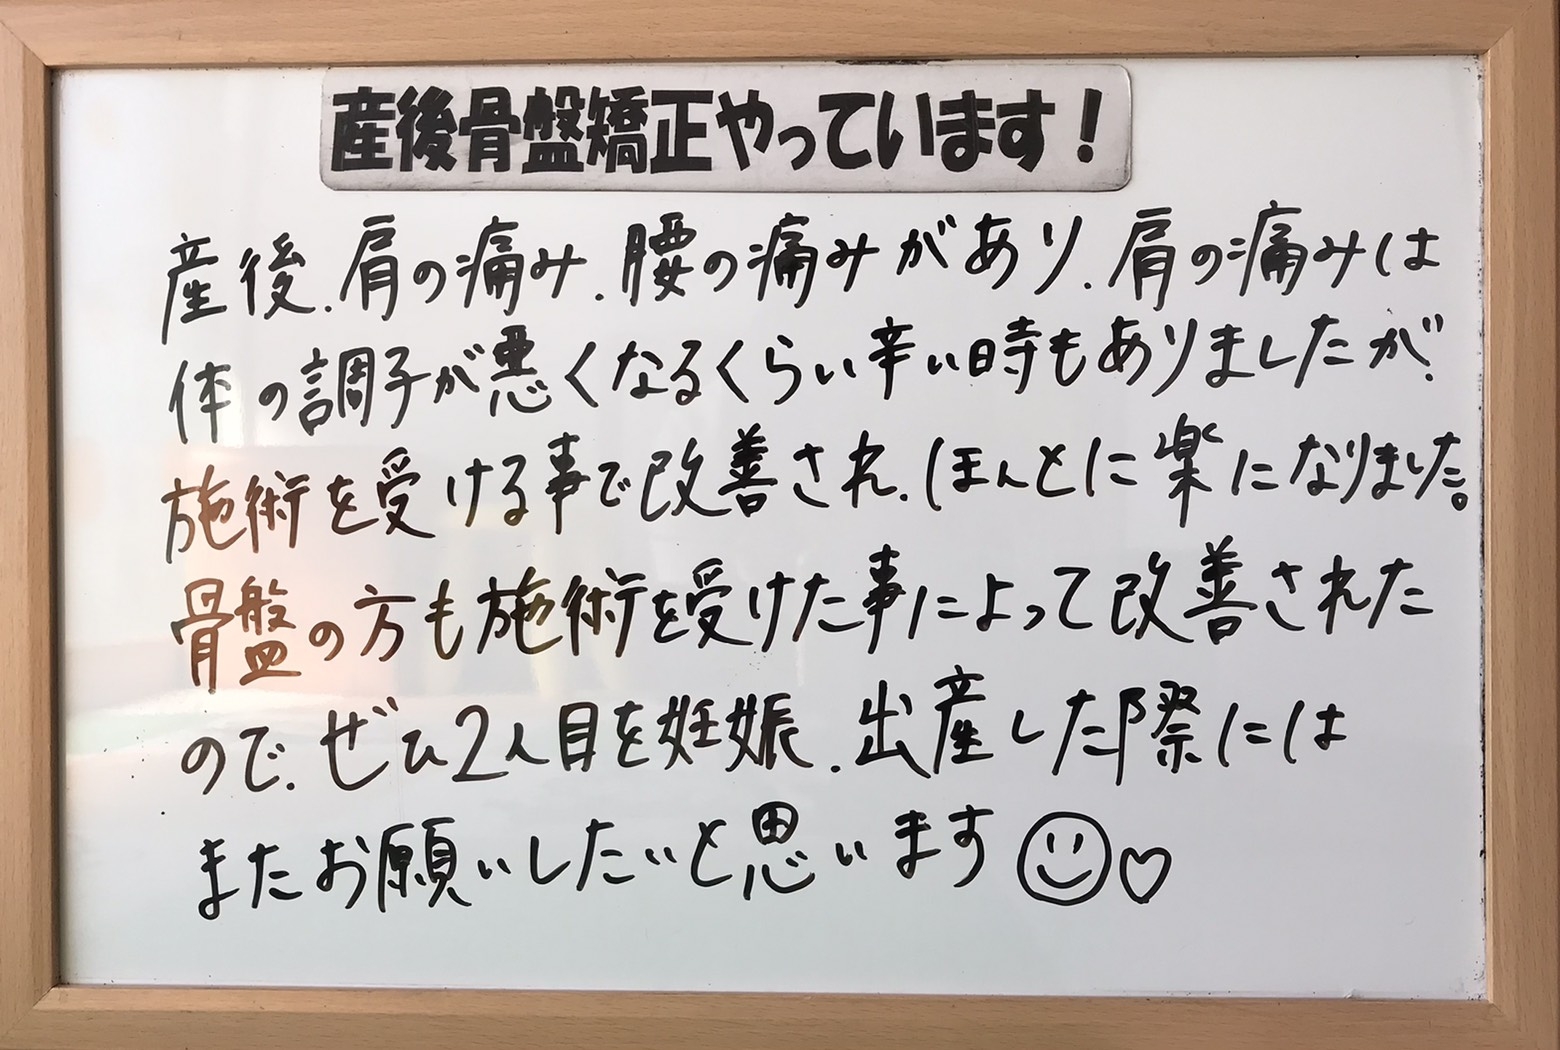 産後骨盤矯正やっています！
産後、肩の痛み、腰の痛みがあり、肩の痛みは
体の調子が悪くなるくらい辛い時もありましたが、
施術を受ける事で改善され、ほんとに楽になりました。
骨盤の方も施術を受けた事によって改善された
ので、ぜひ2人目を妊娠、出産した際には
またお願いしたいと思います☺♡